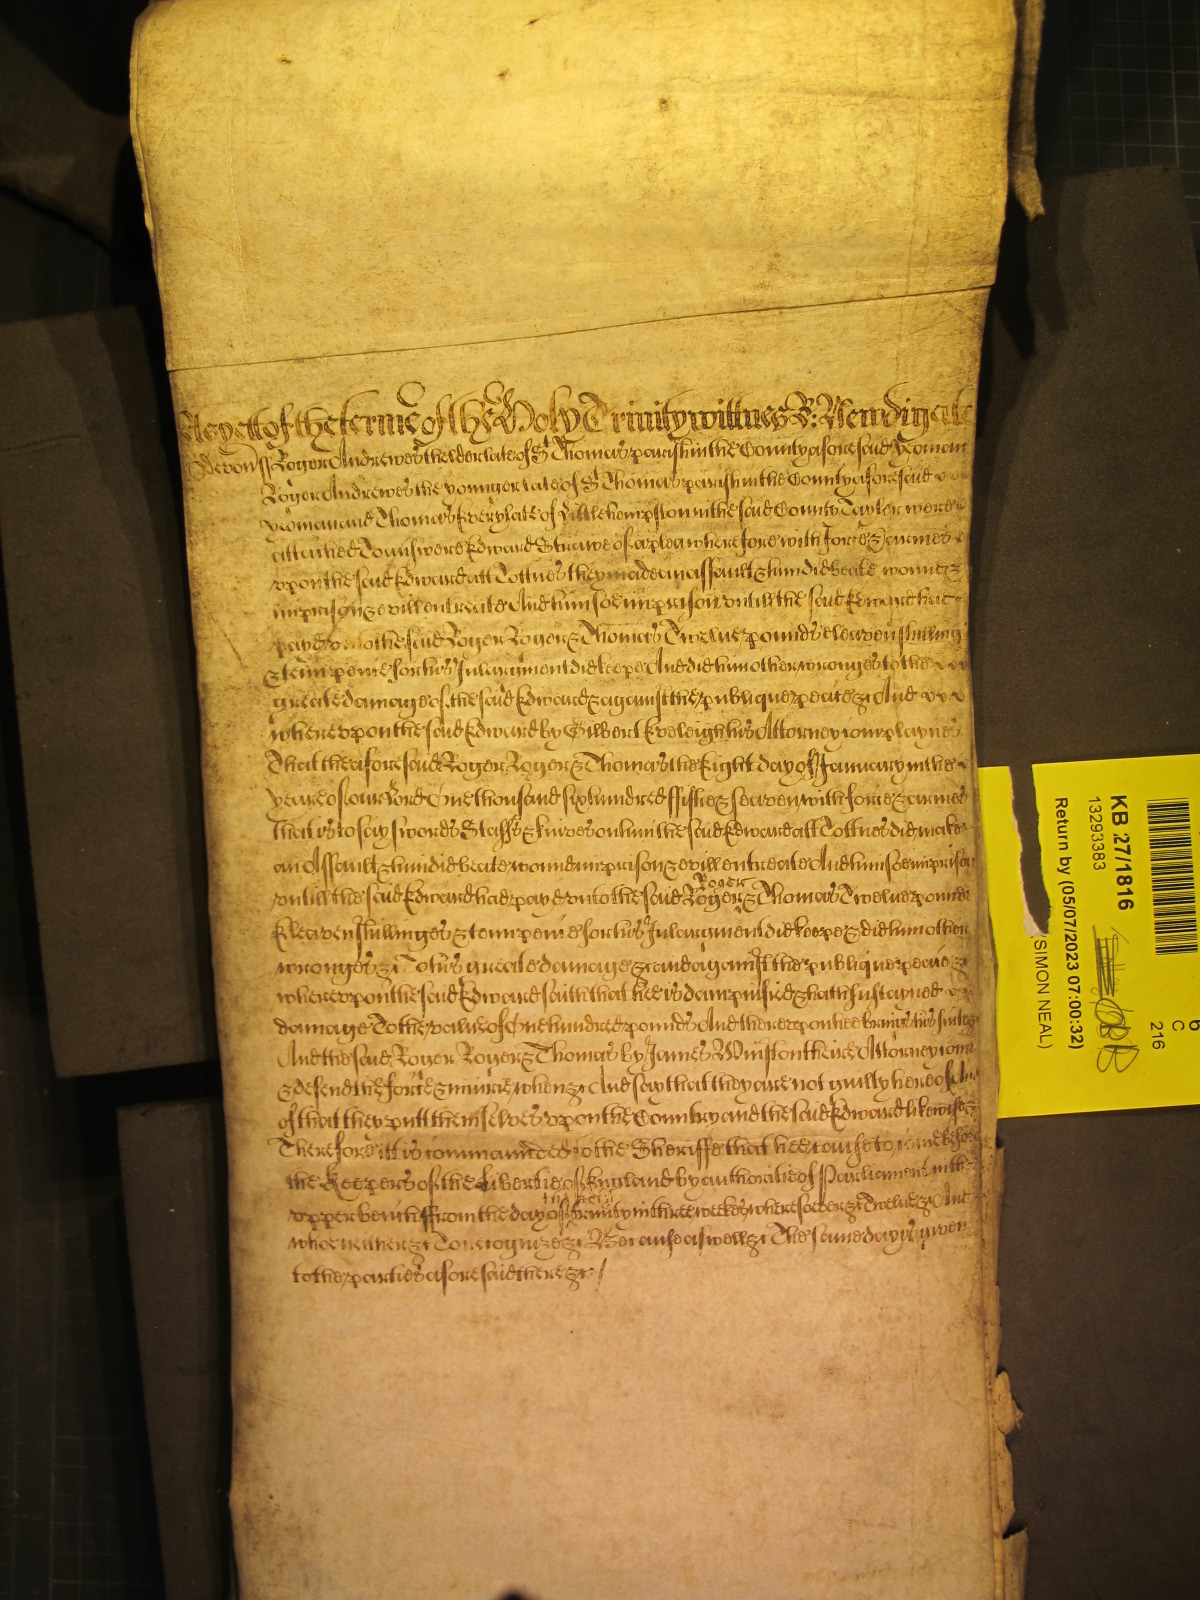 As yett of the terme of the Holy Trinity wittnes R: Newdigate
Devon ss Roger Andrewes the elder late of St Thomas parish in the County aforesaid Yeoman
Roger Andrewes the younger late of St Thomas parish in the County aforesaid
yeoman and Thomas Every late of Little hempston in the said County Taylor were
attached To answere Edward Strawe of a plea wherefore with force & armes
vpon the said Edward att Tottnes they made an assault & him did beate wound &
imprison & evill entreate And him soe in prison vntill the said Edward had
payed vnto the said Roger Roger & Thomas Twelue pounds eleaven shillings
& tenn pence for his Inlargment did keepe And did him other wronges to the
greate damage of the said Edward & against the publique peace &c And
wherevpon the said Edward by Gilbert Eveleigh his Attorney complaynes
That the aforesaid Roger Roger & Thomas the Eight day of January in the
yeare of our Lord One thousand six hundred fiftie & seaven with force & armes
that is to say swords Staffs & knives on him the said Edward att Tottnes did make
an Assault & him did beate wound imprison & evill entreate And him soe in prison
vntill the said Edward had payed vnto the said Roger Roger & Thomas Twelue pounds
Eleaven shillinges & tenn pence for his Inlargment did keepe & did him other
wronges &c To his greate damage &c and against the publique peace &c
wherevpon the said Edward saith that hee is dampnified & hath sustayned
damage To the value of One hundred pounds And therevpon hee brings his suite &c
And the said Roger Roger & Thomas by James Winston theire Attorney come
& defend the force & iniurie when &c And say that they are not guilty hereof And
of that they putt themselves vpon the Country and the said Edward likewise &c
Therefore itt is commannded to the Sheriffe that hee cause to come before
the Keepers of the Libertie of England by authoritie of Parliament in the
vpper bench from the day of the holy Trinity in three weekes wheresoever &c Twelue &c And
who neither &c To recognize &c Because as well &c The same day is given
to the parties aforesaid there &c /
KB 27/1816
13293383
Return by (05/07/2023 07:00:32)
(SIMON NEAL)
6
C
216